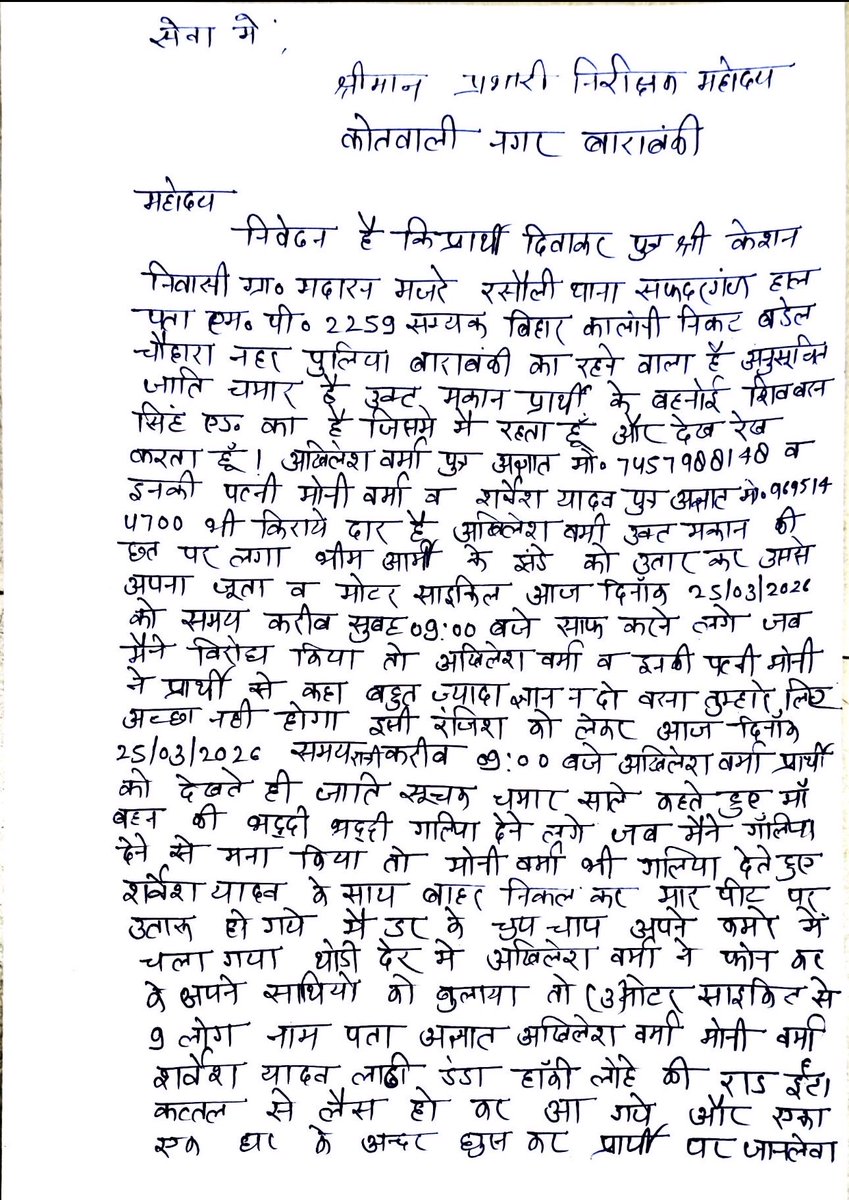 सेवा में,
श्रीमान प्रभारी निरीक्षक महोदय
कोतवाली नगर बाराबंकी
महोदय
निवेदन है कि प्रार्थी दिवाकर पुत्र श्री केशन
निवासी ग्रा० मदारन मजरे रसौली थाना सफदरगंज हाल
पता एम० पी० 2259 सम्यक बिहार कालोनी निकट बडेल
चौहारा नहर पुलिया बाराबंकी का रहने वाला है अनुसूचित
जाति चमार है उक्त मकान प्रार्थी के बहनोई शिवबरन
सिंह एड० का है जिसमे मै रहता हूँ और देख रेख
करता हूँ। अखिलेश वर्मा पुत्र अज्ञात मो० 7457988148 व
इनकी पत्नी मोनी वर्मा व शर्वेश यादव पुत्र अज्ञात मो० 969514
4700 भी किराये दार है अखिलेश वर्मा उक्त मकान की
छत पर लगा भीम आर्मी के झंडे को उतार कर उससे
अपना जूता व मोटर साइकिल आज दिनाँक 25/03/2026
को समय करीब सुबह 09:00 बजे साफ करने लगे जब
मैने विरोध किया तो अखिलेश वर्मा व इनकी पत्नी मोनी
ने प्रार्थी से कहा बहुत ज्यादा ज्ञान न दो वरना तुम्हारे लिए
अच्छा नही होगा इसी रंजिश को लेकर आज दिनाँक
25/03/2026 समय रात्री करीब 09:00 बजे अखिलेश वर्मा प्रार्थी
को देखते ही जाति सूचक चमार साले कहते हुए माँ
बहन की भद्दी भद्दी गलिया देने लगे जब मैने गाँलिया
देने से मना किया तो मोनी वर्मा भी गलिया देते हुए
शर्वेश यादव के साथ बाहर निकल कर मार पीट पर
उतारू हो गये मै डर के चुप चाप अपने कमरे में
चला गया थोडी देर मे अखिलेश वर्मा ने फोन कर
के अपने साथियो को बुलाया तो (3) मोटर साइकिल से
9 लोग नाम पता अज्ञात अखिलेश वर्मा मोनी वर्मा
शर्वेश यादव लाठी डंडा हॉकी लोहे की राड ईंटा
कत्तल से लैस हो कर आ गये और एका
एक घर के अन्दर घुस कर प्रार्थी पर जानलेवा